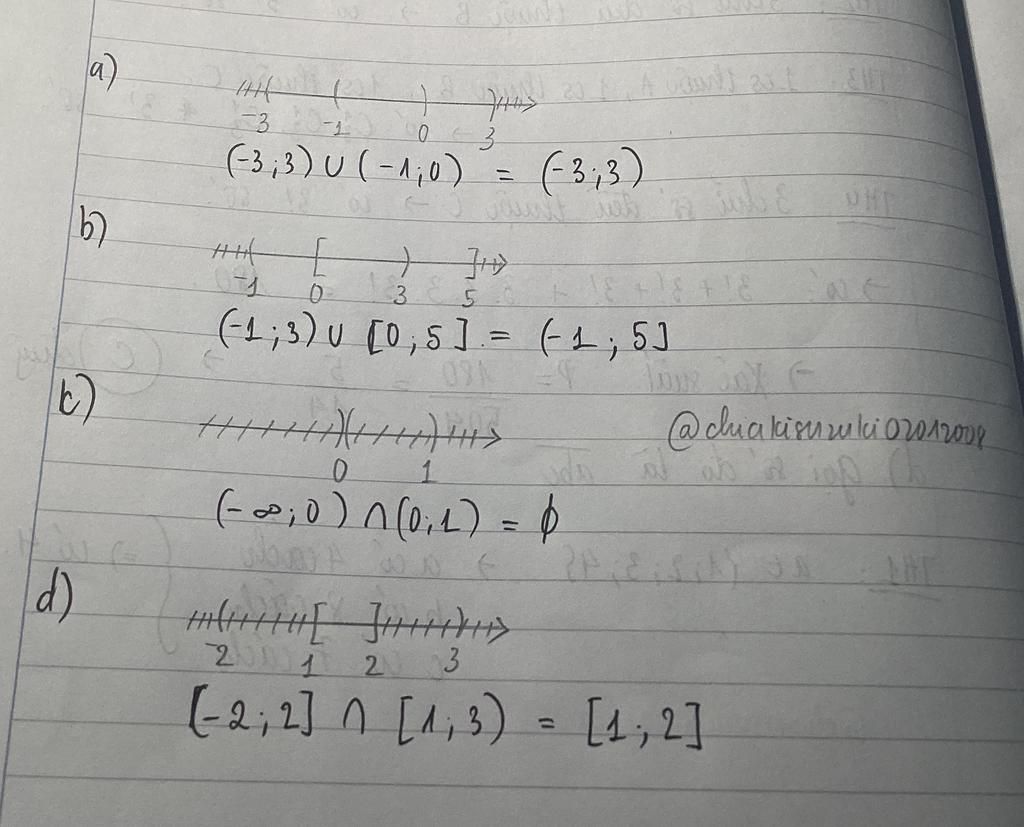 a)
-3 -1 0 3
(-3;3) ∪ (-1;0) = (-3;3)
b)
-1 0 3 5
(-1;3) ∪ [0;5] = (-1;5]
c)
@chiakisuzuki02012008
0 1
(-∞;0) ∩ (0;1) = ϕ
d)
-2 1 2 3
[-2;2] ∩ [1;3) = [1;2]